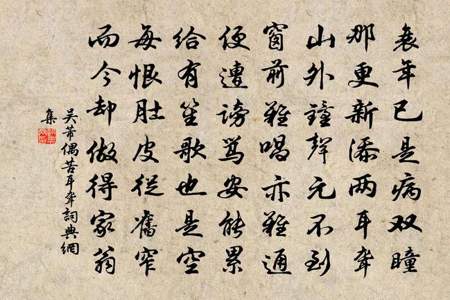 衰年已是病双瞳
那更新添两耳聋
山外鐘聲元不到
窗前雞唱亦難通
便遭謗罵安能累
給有笙歌也是空
每恨肚皮從舊窄
而今却做得家翁
吴芾偶苦耳聋詞典網
集